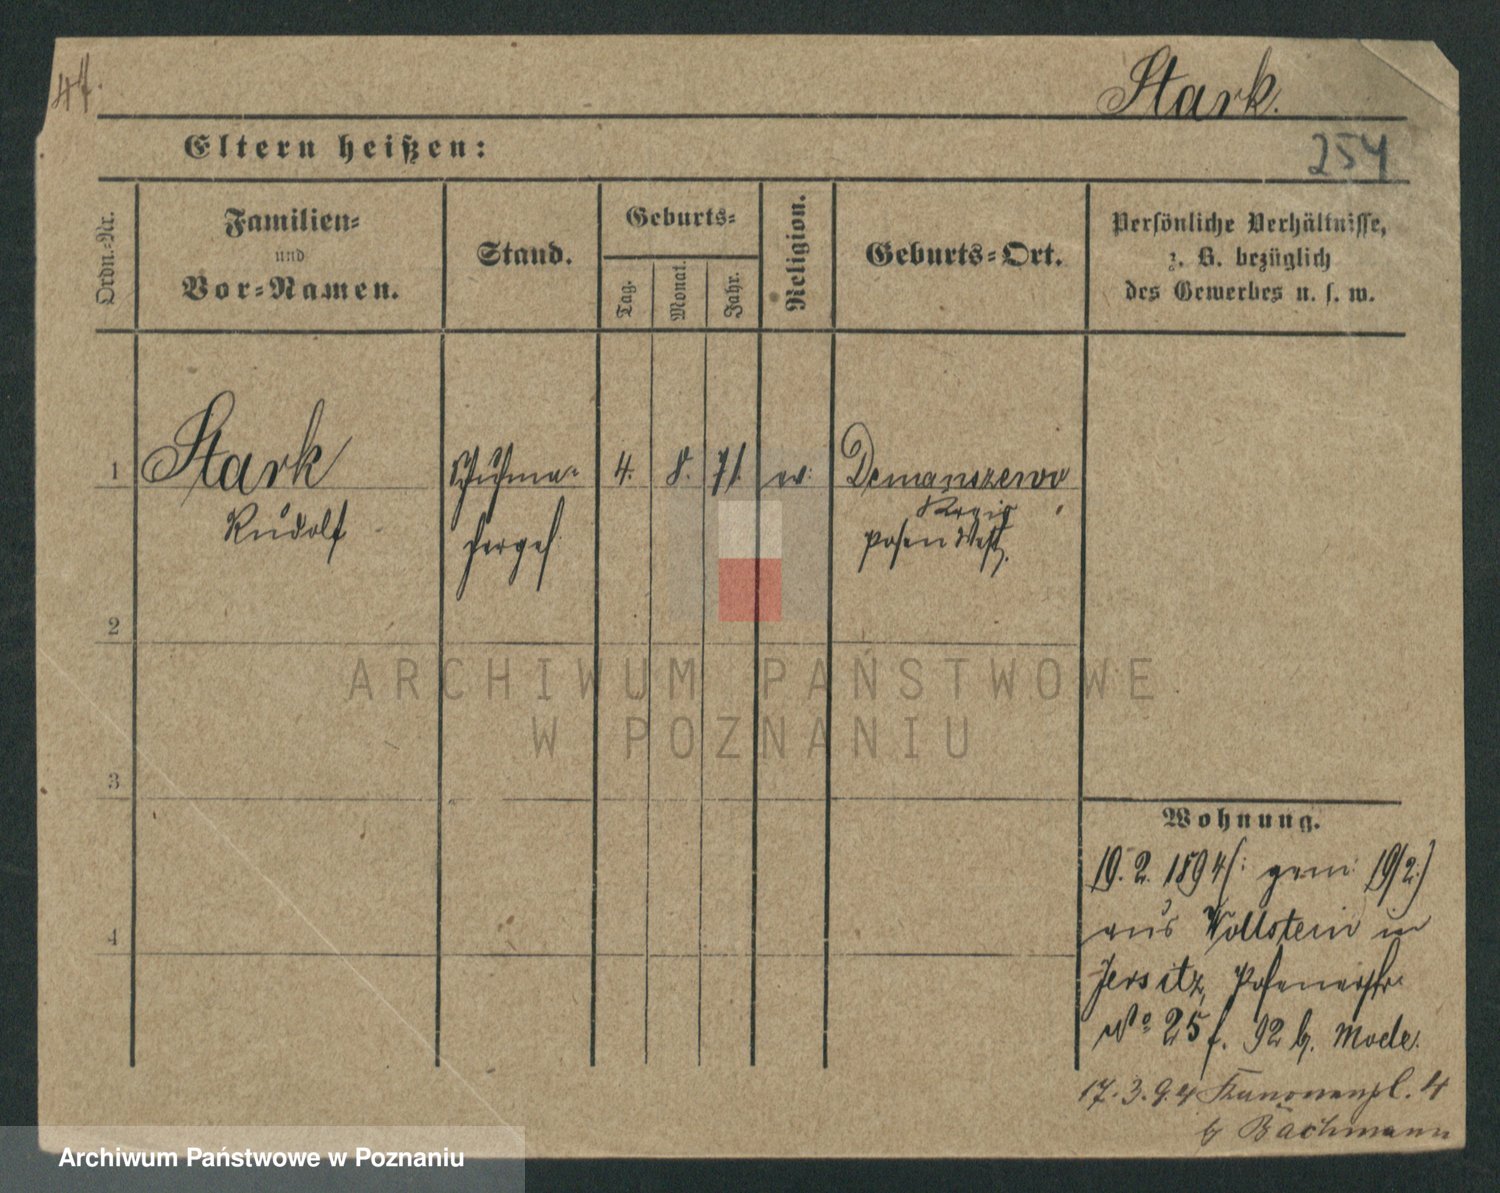 47.
Stark.
Eltern heißen:
254
Ordn.=Nr.
Familien=
und
Vor=Namen.
Stand.
Geburts=
Tag.
Monat.
Jahr.
Religion.
Geburts=Ort.
Persönliche Verhältnisse,
z. B. bezüglich
des Gewerbes u. s. w.
1
Stark
Rudolf
Schuhma-
cherges.
4.
8.
71.
ev.
Demanszewo
Kreis
Posen West.
2
3
4
Wohnung.
19. 2. 1894 (: gem: 19/2:)
aus Wollstein in
Jersitz, Posenerstr.
No 25 f. 92 b. Mode.
17.3.94 Kanonenpl. 4
b Bachmann
ARCHIWUM PAŃSTWOWE
W POZNANIU
Archiwum Państwowe w Poznaniu